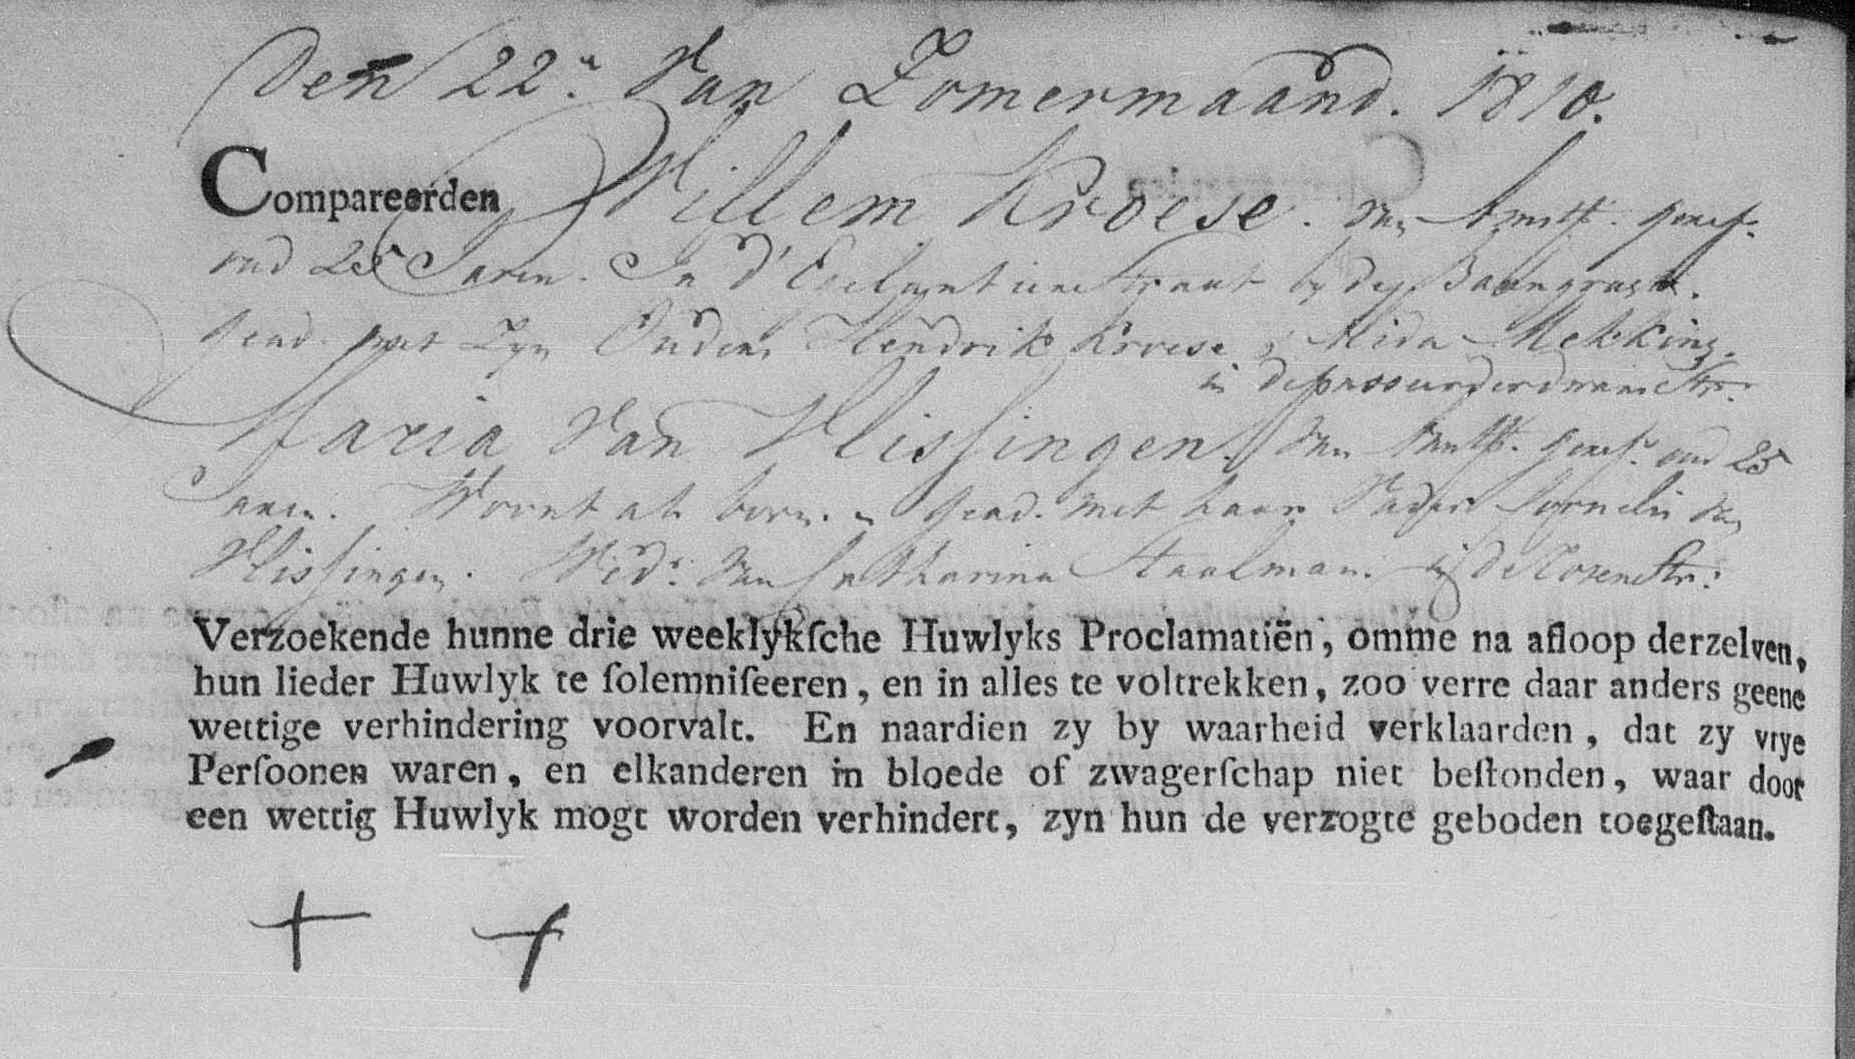 Den 22n. Van Zomermaand. 1810.
Compareerden Willem Kroese. Van Amstr. geref.
oud 25 Jaren. In d'Egelantierstraat by de Baangragt.
gead. met Zyn Ouders Hendrik Kroese, & Alida Mekking.
in de
Maria Van Vlissingen. Van Amstr. geref. oud 25
Jaren. Woont als boven. gead. met haar Vader Cornelis van
Vlissingen. Wedr. van Catharina Staalman. in de Rosenstr:
Verzoekende hunne drie weeklykſche Huwlyks Proclamatiën, omme na afloop derzelven,
hun lieder Huwlyk te ſolemniſeeren, en in alles te voltrekken, zoo verre daar anders geene
wettige verhindering voorvalt. En naardien zy by waarheid verklaarden, dat zy vrye
Perſoonen waren, en elkanderen in bloede of zwagerſchap niet beſtonden, waar door
een wettig Huwlyk mogt worden verhindert, zyn hun de verzogte geboden toegeſtaan.